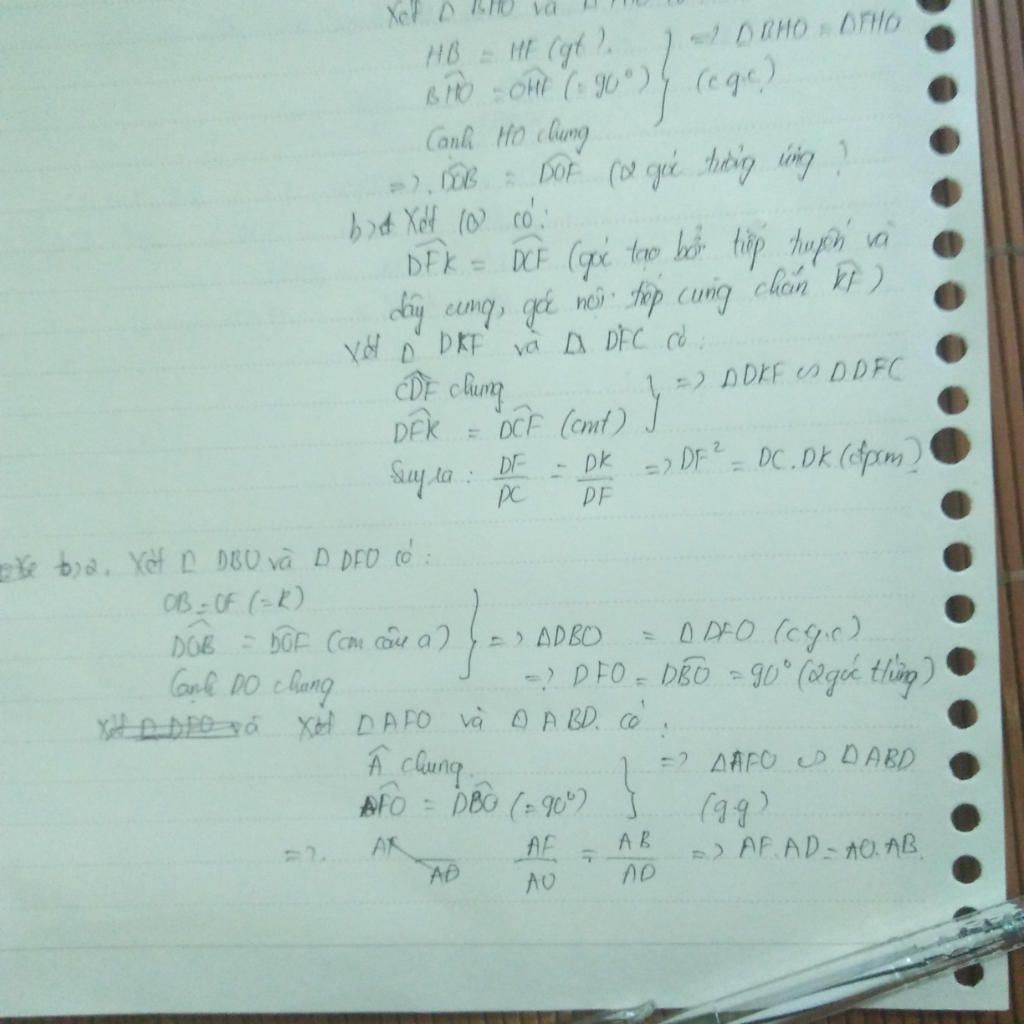 Xét Δ BHO và Δ FHO có
HB = HF (gt).
BHO = OHF (= 90°) } => Δ BHO = Δ FHO (c g.c)
Cạnh HO chung
=> DOB = DOF (2 góc tưởng ứng)
b) 1 Xét (O) có:
DFK = DCF (góc tạo bởi tiếp tuyến và
dây cung, góc nội tiếp cùng chắn KF)
Xét Δ DKF và Δ DFC có:
CDF chung
DFK = DCF (cmt) } => Δ DKF ∽ Δ DFC
Suy ra: DF/DC = DK/DF => DF² = DC.DK (đpcm)
b) 2. Xét Δ DBO và Δ DFO có:
OB = OF (= R)
DOB = DOF (cm câu a) } => Δ DBO = Δ DFO (c g.c)
Cạnh DO chung => DFO = DBO = 90° (2 góc t/ứng)
Xét Δ DFO và Xét Δ AFO và Δ ABD. có:
Â chung.
AFO = DBO (= 90°) } => Δ AFO ∽ Δ ABD (g.g)
=> AF AD AF/AO = AB/AD => AF.AD = AO.AB.